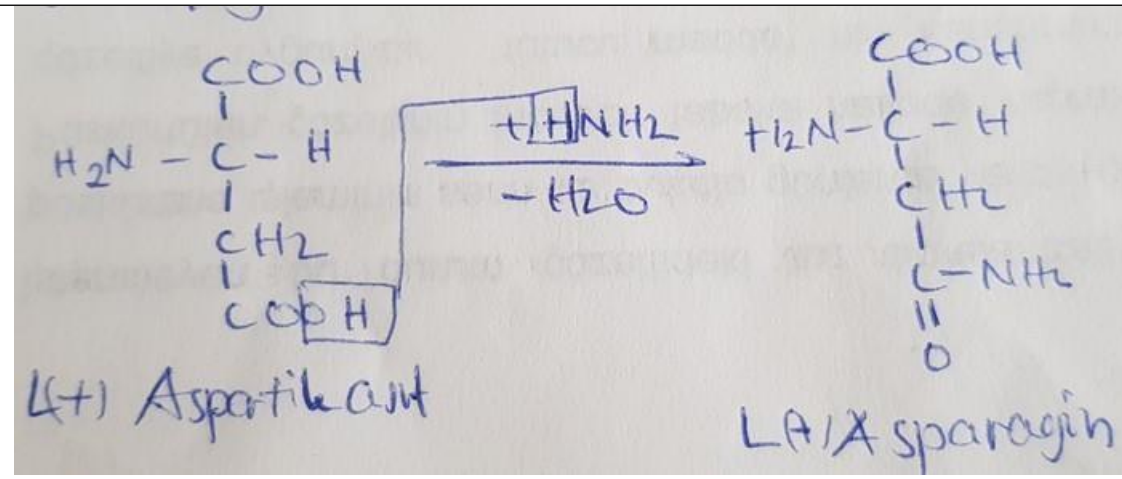 COOH
H2N - C - H
CH2
COOH
L(+) Aspartik asit
+HNH2
- H2O
COOH
H2N - C - H
CH2
C - NH2
O
Asparagin